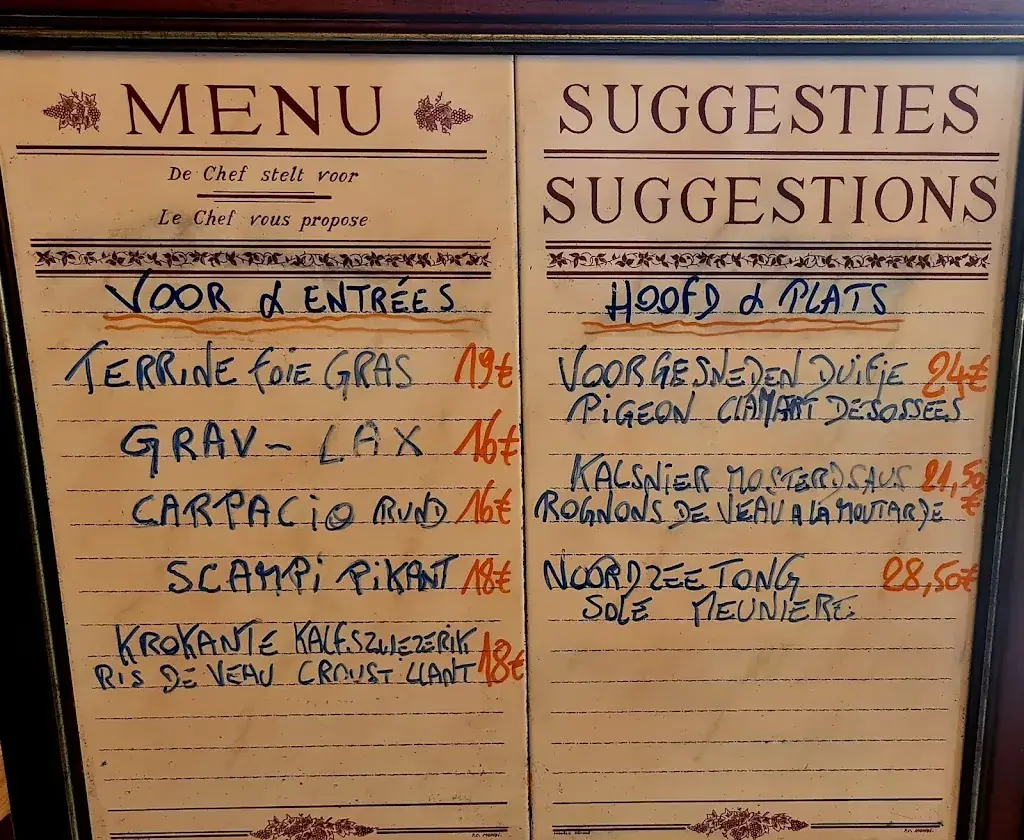 MENU
De Chef stelt voor
Le Chef vous propose
VOOR & ENTRÉES
TERRINE FOIE GRAS 19€
GRAV- LAX 16€
CARPACIO RUND 16€
SCAMPI PIKANT 18€
KROKANTE KALFSZWEZERIK
RIS DE VEAU CROUSTILLANT 18€
SUGGESTIES
SUGGESTIONS
HOOFD & PLATS
VOORGESNEDEN DUIFJE 24€
PIGEON CLAMART DESOSSEES
KALSNIER MOSTERDSAUS 21,50
ROGNONS DE VEAU A LA MOUTARDE €
NOORDZEETONG 28,50€
SOLE MEUNIERE